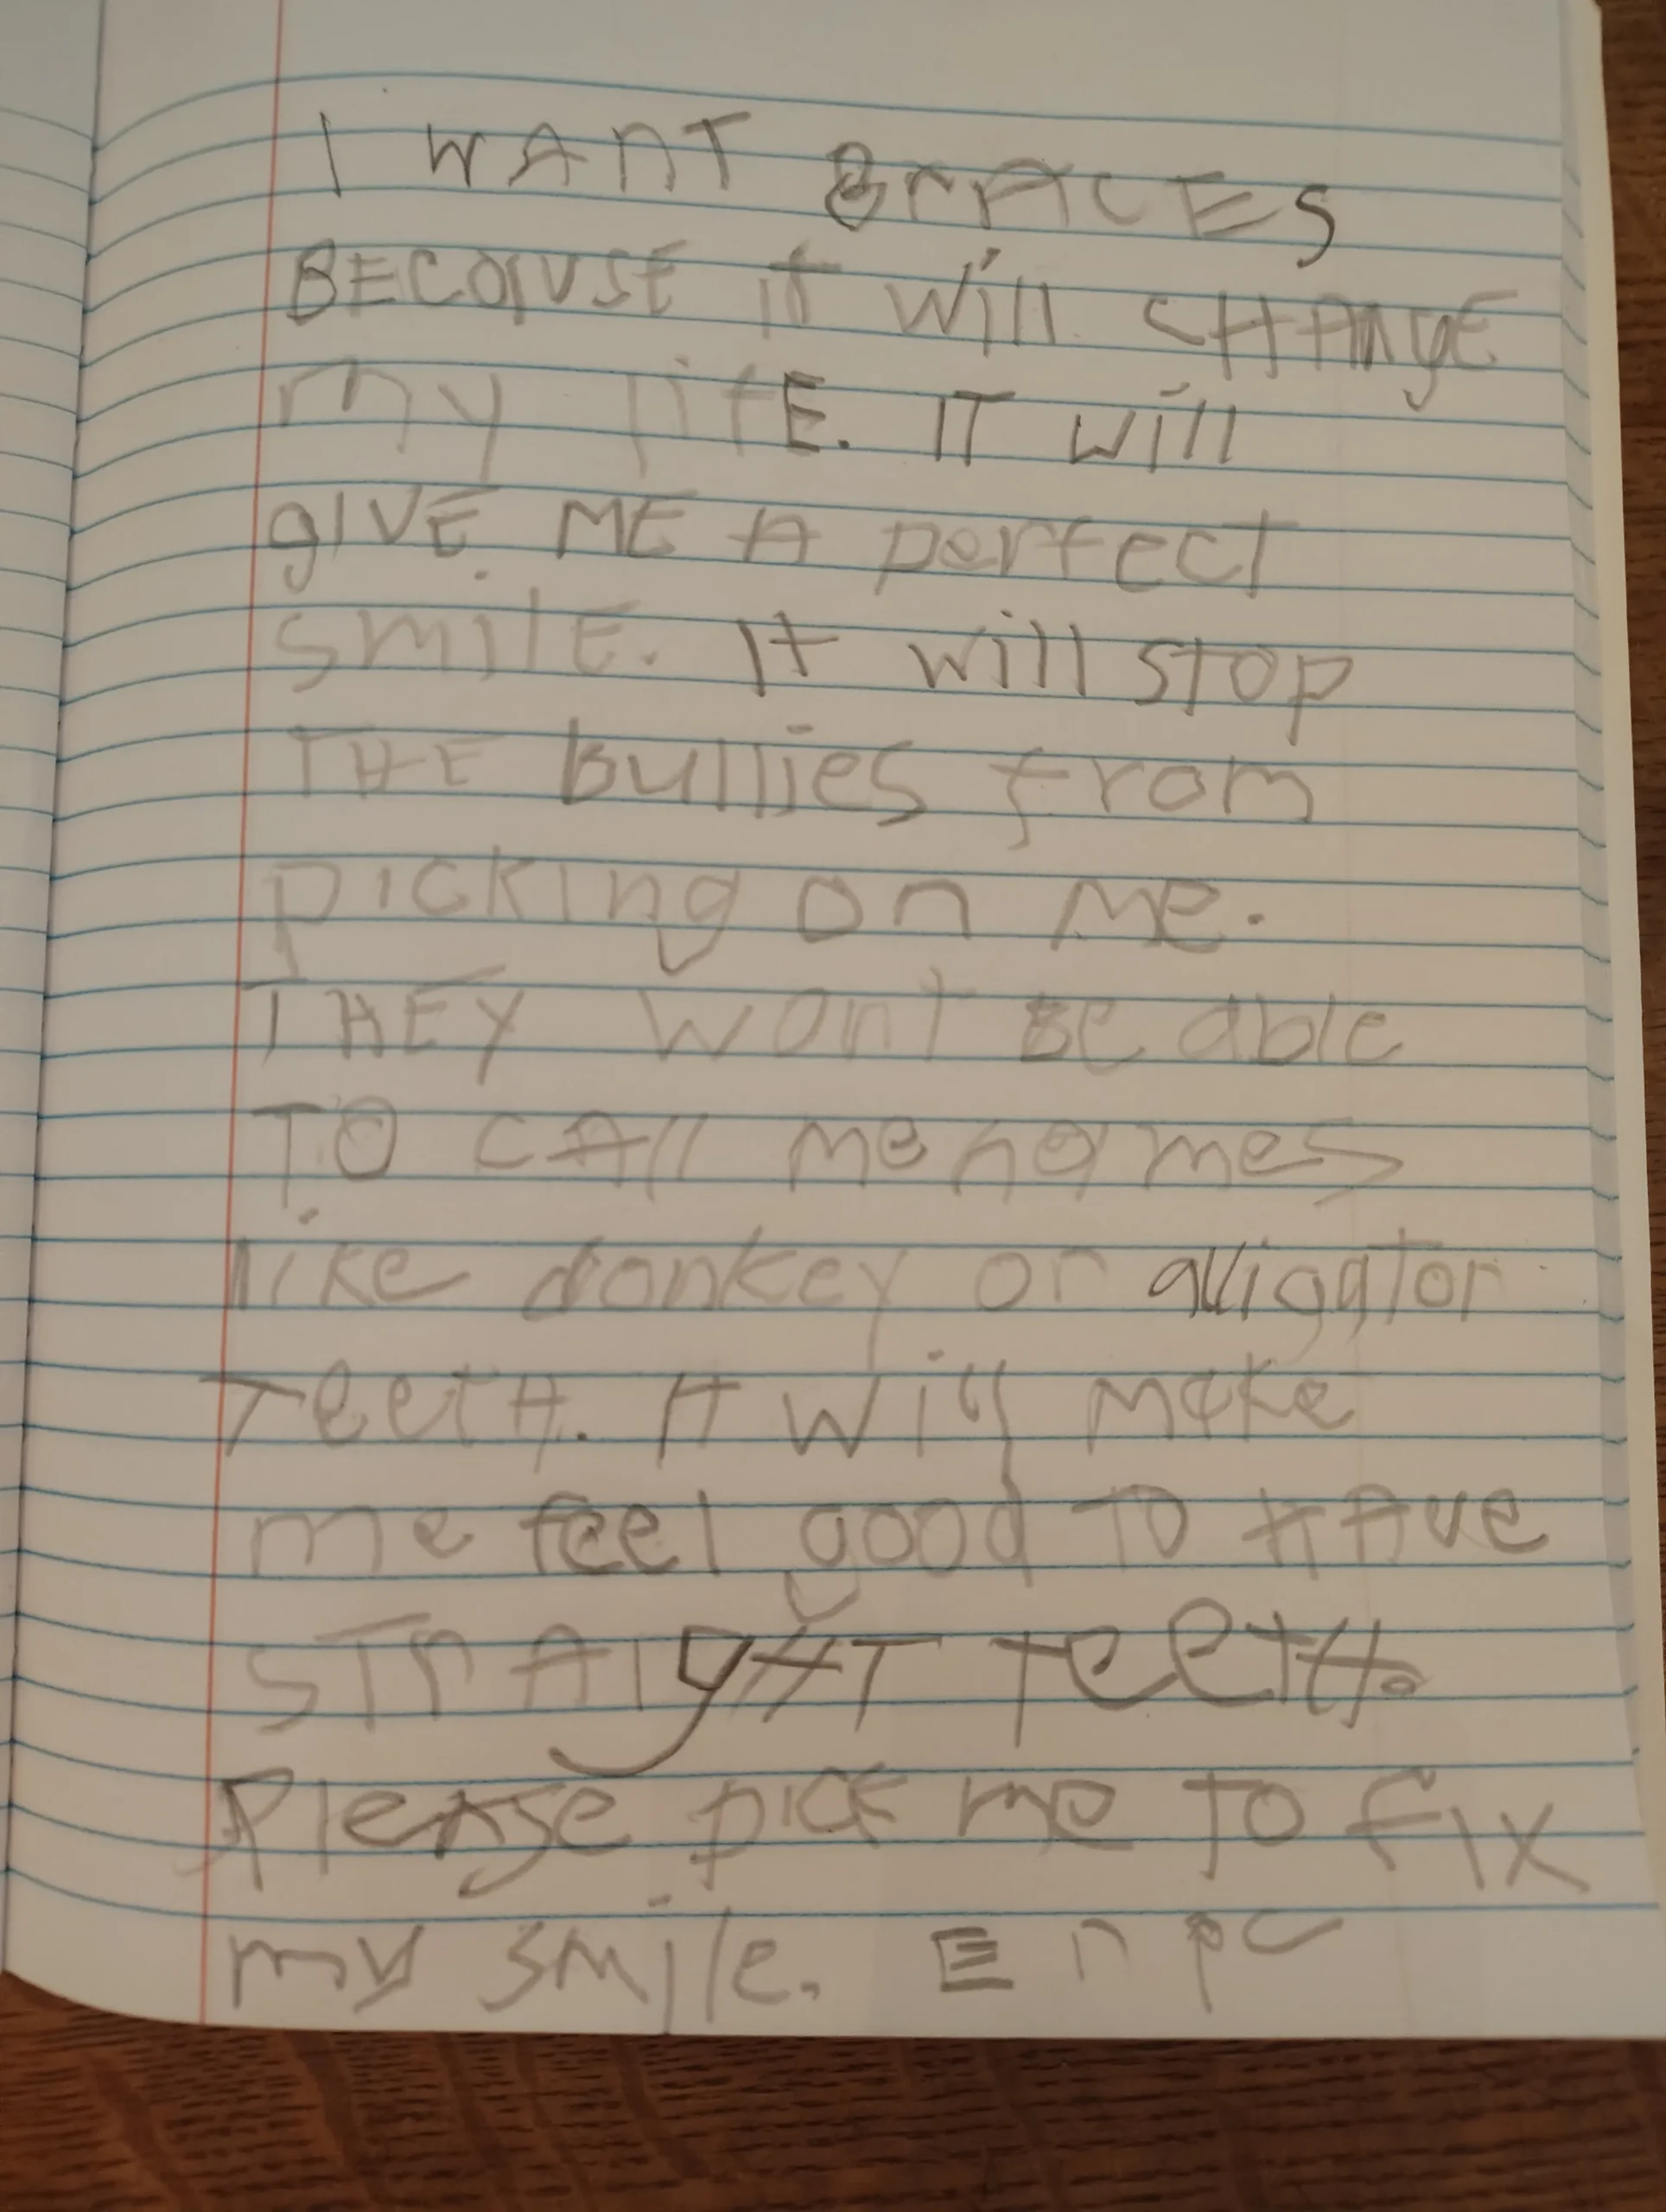 I WANT BrACES
BECAUSE it will CHANgE
my lifE. IT will
gIVE ME A perfect
smilE. It will stop
THE bullies from
picking on me.
THEY wont BE able
TO CAll me names
like donkey or alligator
TeetH. It will make
me feel good TO HAve
STrAIgHT TeetH.
Please pick me To fix
my smile.